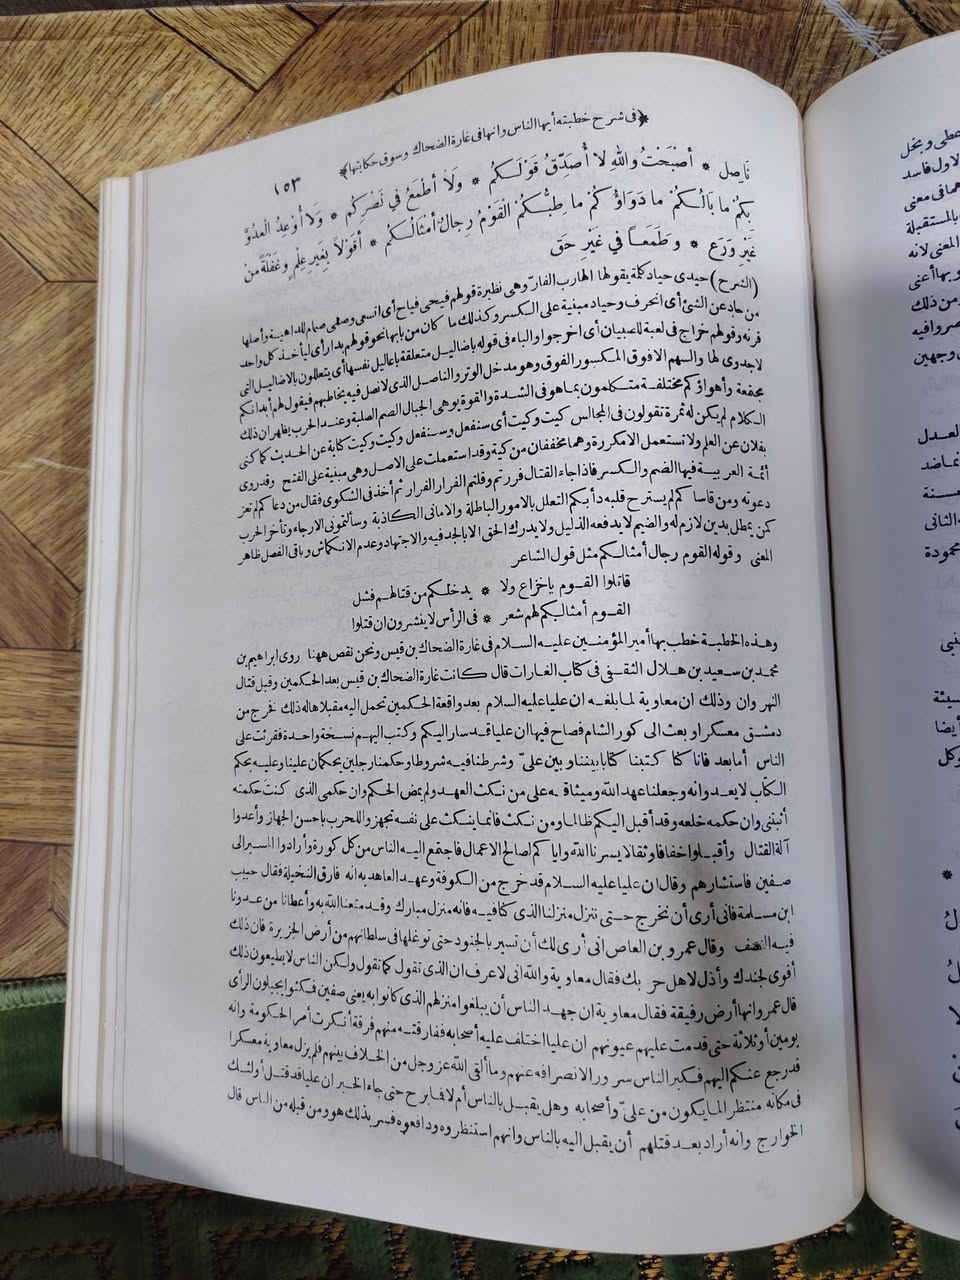 ﴿فى شرح خطبته أيها الناس وانها فى غارة الضحاك وسوق حكايتها﴾
١٥٣
نَاصِل * أَصْبَحْتُ وَاللهِ لَا أُصَدِّقُ قَوْلَكُمْ * وَلَا أَطْمَعُ فِي نَصْرِكُمْ * وَلَا أُوعِدُ الْعَدُوَّ
بِكُمْ مَا بَالُكُمْ مَا دَوَاؤُكُمْ مَا طِبُّكُمْ الْقَوْمُ رِجَالٌ أَمْثَالُكُمْ * أَقَوْلًا بِغَيْرِ عِلْمٍ وَغَفْلَةً مِنْ
غَيْرِ وَرَعٍ * وَطَمَعًا فِي غَيْرِ حَق
(الشرح) حيدى حياد كلمة يقولها الهارب الفارّ وهى نظيرة قولهم فيحى فياح أى اتسعى وصمى صمام للداهية وأصلها
من حاد عن الشئ أى انحرف وحياد مبنية على الكسر وكذلك ما كان من بابها نحو قولهم بدار أى ليأخذ كل واحد
قرنه وقولهم خراج فى لعبة للصبيان أى اخرجوا والباء فى قوله باضاليل متعلقة باعاليل نفسها أى يتعللون بالاضاليل التى
لا جدوى لها والسهم الافوق المكسور الفوق وهو مدخل الوتر والناصل الذى لا نصل فيه يخاطبهم فيقول لهم أبدانكم
مجتمعة وأهواؤكم مختلفة متكلمون بما هو فى الشدة والقوة يوهى الجبال الصم الصلبة وعند الحرب يظهر ان ذلك
الكلام لم يكن له ثمرة تقولون فى المجالس كيت وكيت أى سنفعل وسنفعل وكيت وكيت كناية عن الحديث كما كنى
بفلان عن العلم ولا تستعمل الا مكررة وهما مخففان من كية وقد استعملت على الاصل وهى مبنية على الفتح وقد روى
أئمة العربية فيها الضم والكسر فاذا جاء القتال فررتم وقلتم الفرار الفرار ثم أخذ فى الشكوى فقال من دعاكم لم تعز
دعوته ومن قاساكم لم يسترح قلبه دأبكم التعلل بالامور الباطلة والامانى الكاذبة وسألتمونى الارجاء وتأخر الحرب
كمن يمطل بدين لازم له والضيم لا يدفعه الذليل ولا يدرك الحق الا بالجد فيه والاجتهاد وعدم الانكماش وباقى الفصل ظاهر
المعنى وقوله القوم رجال أمثالكم مثل قول الشاعر
قاتلوا القوم ياخزاع ولا * يدخلكم من قتالهم فشل
القوم أمثالكم لهم شعر * فى الرأس لا ينشرون ان قتلوا
وهذه الخطبة خطب بها أمير المؤمنين عليه السلام فى غارة الضحاك بن قيس ونحن نقص ههنا روى ابراهيم بن
محمد بن سعيد بن هلال الثقفى فى كتاب الغارات قال كانت غارة الضحاك بن قيس بعد الحكمين وقبل قتال
النهروان وذلك ان معاوية لما بلغه ان عليا عليه السلام بعد واقعة الحكمين تحمل اليه مقبلا هاله ذلك فخرج من
دمشق معسكرا وبعث الى كور الشام فصاح فيها ان عليا قد سار اليكم وكتب اليهم نسخة واحدة فقرئت على
الناس أما بعد فانا كنا كتبنا كتابا بيننا وبين علىّ وشرطنا فيه شروطا وحكمنا رجلين يحكمان علينا وعليه بحكم
الكتاب لا يعدوانه وجعلنا عهد الله وميثاقه على من نكث العهد ولم يمض الحكم وان حكمى الذى كنت حكمته
أثبتنى وان حكمه خلعه وقد أقبل اليكم ظالما ومن نكث فانما ينكث على نفسه تجهزوا للحرب باحسن الجهاز وأعدوا
آلة القتال وأقبلوا خفافا وثقالا يسرنا الله واياكم لصالح الاعمال فاجتمع اليه الناس من كل كورة وأرادوا المسير الى
صفين فاستشارهم وقال ان عليا عليه السلام قد خرج من الكوفة وعهد العاهد به انه فارق النخيلة فقال حبيب
ابن مسلمة فانى أرى أن نخرج حتى ننزل منزلنا الذى كنا فيه فانه منزل مبارك وقد متعنا الله به وأعطانا من عدونا
فيه النصف وقال عمرو بن العاص انى أرى لك أن تسير بالجنود حتى توغلها فى سلطانهم من أرض الجزيرة فان ذلك
أقوى لجندك وأذل لاهل حربك فقال معاوية والله انى لاعرف ان الذى تقول كما تقول ولكن الناس لا يطيعون ذلك
قال عمرو انها أرض رفيقة فقال معاوية ان جهد الناس أن يبلغوا منزلهم الذى كانوا به يعنى صفين فمكثوا يجيلون الرأى
يومين أو ثلاثة حتى قدمت عليهم عيونهم ان عليا اختلف عليه أصحابه ففارقته منهم فرقة أنكرت أمر الحكومة وانه
قد رجع عنكم اليهم فكبر الناس سرورا لانصرافه عنهم وما ألقى الله عز وجل من الخلاف بينهم فلم يزل معاوية معسكرا
فى مكانه منتظرا لما يكون من علىّ وأصحابه وهل يقبل بالناس أم لا فما برح حتى جاء الخبر ان عليا قد قتل أولئك
الخوارج وانه أراد بعد قتلهم أن يقبل اليه بالناس وانهم استنظروه ودافعوه فسر بذلك هو ومن قبله من الناس قال